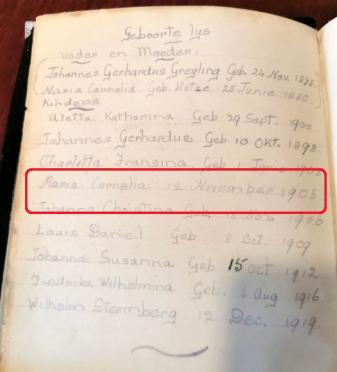 Geboorte lys
Vader en Moeder.
Johannes Gerhardus Greyling Geb. 24 Nov. 1875.
Maria Cornelia. Geb. Kotze 25 Junie 1880.
Kinders
Aletta Katharina Geb 29 Sept. 1900
Johannes Gerhardus Geb 10 Okt.
Charlotta Fransina Geb 1 Junie
Maria Cornelia 12 November 1905
Johanna Christina Geb
Louis Daniel Geb 8 Oct. 1909
Johanna Susanna Geb 15 Oct 1912
Fredrika Wilhelmina Geb. 6 Aug 1916
Wilhelm Sternberg 12 Dec. 1919.